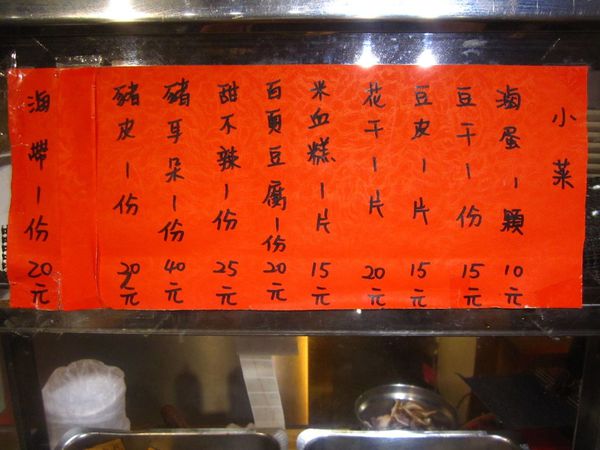 小菜
滷蛋1顆10元
豆干1份15元
豆皮1片15元
花干1片20元
米血糕1片15元
百頁豆腐1份20元
甜不辣1份25元
豬耳朵1份40元
豬皮1份20元
海帶1份20元